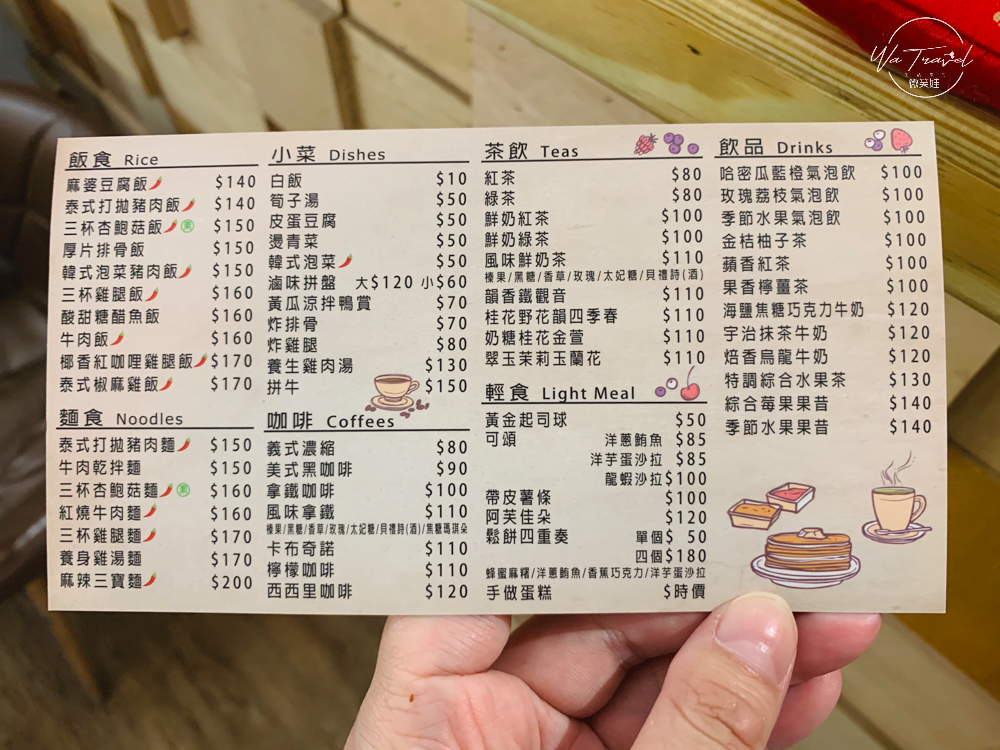 Wa Travel
微笑娃
飯食 Rice
麻婆豆腐飯 $140
泰式打拋豬肉飯 $140
三杯杏鮑菇飯 素 $150
厚片排骨飯 $150
韓式泡菜豬肉飯 $150
三杯雞腿飯 $160
酸甜糖醋魚飯 $160
牛肉飯 $160
椰香紅咖哩雞腿飯 $170
泰式椒麻雞飯 $170
麵食 Noodles
泰式打拋豬肉麵 $150
牛肉乾拌麵 $150
三杯杏鮑菇麵 素 $160
紅燒牛肉麵 $160
三杯雞腿麵 $170
養身雞湯麵 $170
麻辣三寶麵 $200
小菜 Dishes
白飯 $10
筍子湯 $50
皮蛋豆腐 $50
燙青菜 $50
韓式泡菜 $50
滷味拼盤 大$120 小$60
黃瓜涼拌鴨賞 $70
炸排骨 $70
炸雞腿 $80
養生雞肉湯 $130
拼牛 $150
咖啡 Coffees
義式濃縮 $80
美式黑咖啡 $90
拿鐵咖啡 $100
風味拿鐵 $110
榛果/黑糖/香草/玫瑰/太妃糖/貝禮詩(酒)/焦糖瑪琪朵
卡布奇諾 $110
檸檬咖啡 $110
西西里咖啡 $120
茶飲 Teas
紅茶 $80
綠茶 $80
鮮奶紅茶 $100
鮮奶綠茶 $100
風味鮮奶茶 $110
榛果/黑糖/香草/玫瑰/太妃糖/貝禮詩(酒)
韻香鐵觀音 $110
桂花野花韻四季春 $110
奶糖桂花金萱 $110
翠玉茉莉玉蘭花 $110
輕食 Light Meal
黃金起司球 $50
可頌 洋蔥鮪魚 $85
洋芋蛋沙拉 $85
龍蝦沙拉$100
帶皮薯條 $100
阿芙佳朵 $120
鬆餅四重奏 單個$ 50
四個$180
蜂蜜麻糬/洋蔥鮪魚/香蕉巧克力/洋芋蛋沙拉
手做蛋糕 $時價
飲品 Drinks
哈密瓜藍橙氣泡飲 $100
玫瑰荔枝氣泡飲 $100
季節水果氣泡飲 $100
金桔柚子茶 $100
蘋香紅茶 $100
果香檸薑茶 $100
海鹽焦糖巧克力牛奶 $120
宇治抹茶牛奶 $120
焙香烏龍牛奶 $120
特調綜合水果茶 $130
綜合莓果果昔 $140
季節水果果昔 $140